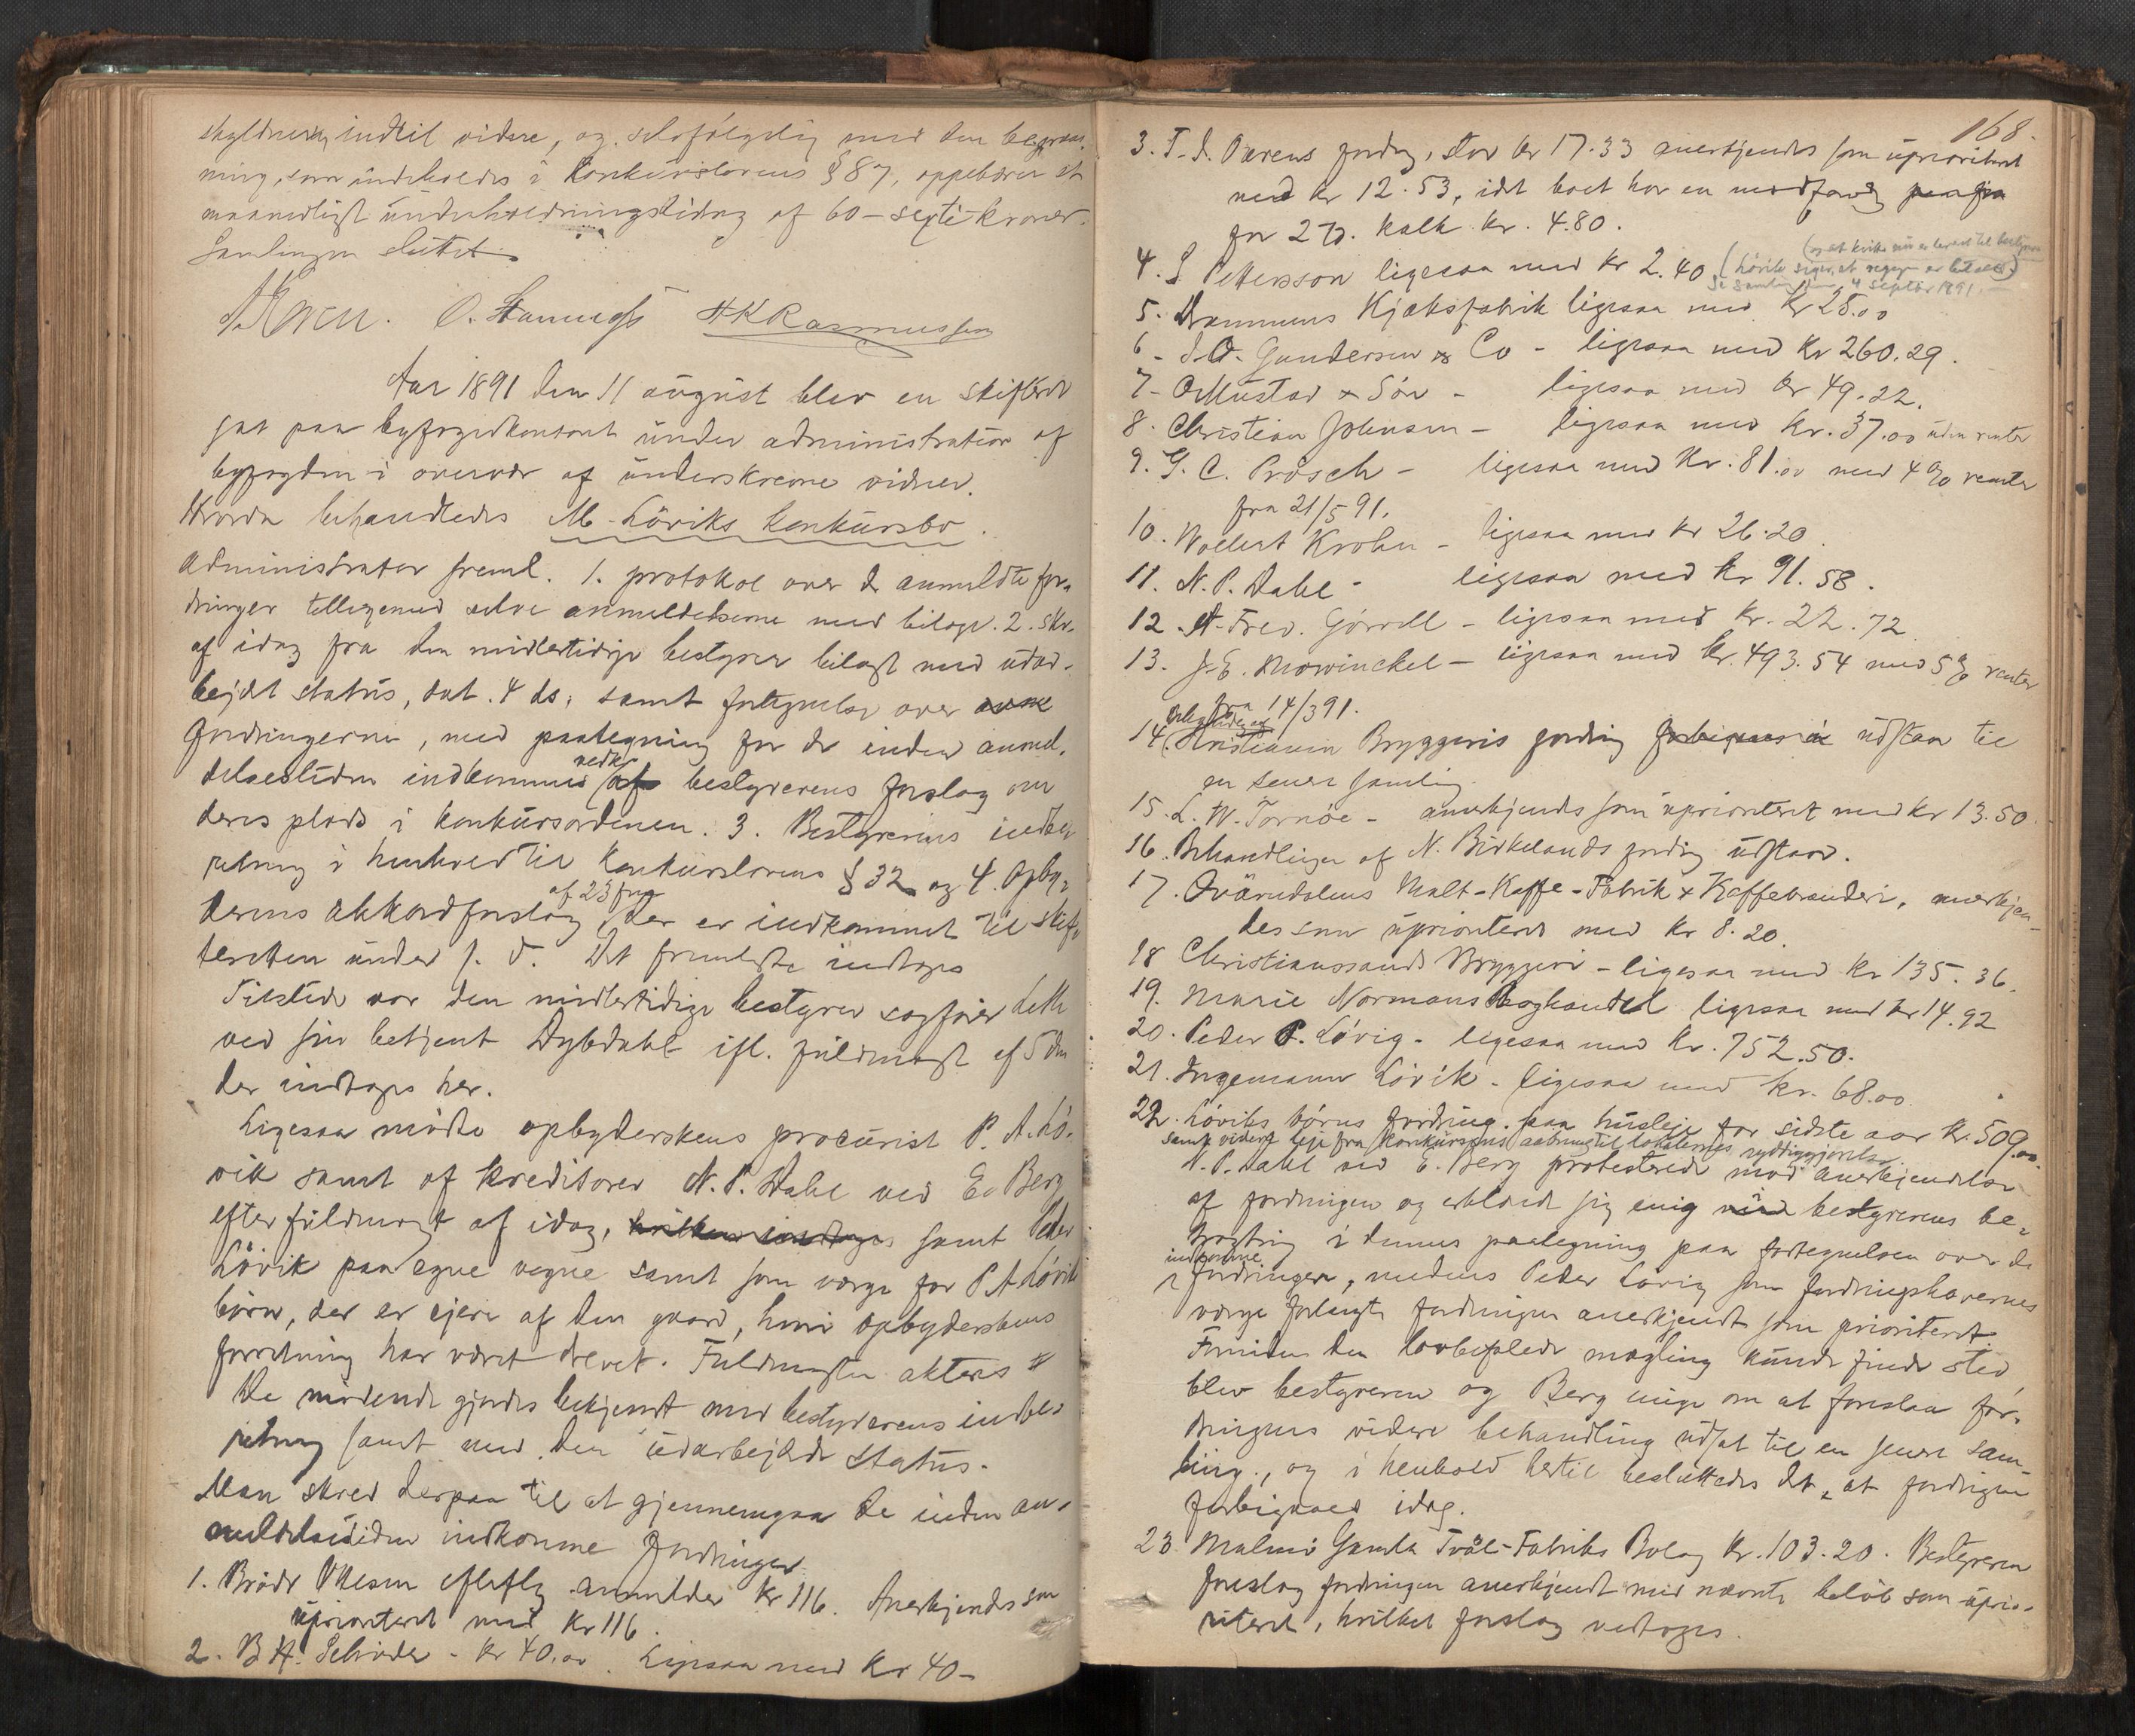 skyldneren indtil videre, og selvfølgelig med den begræns-
ning, som indeholdes i Konkurslovens § 87, oppebærer et
maanedligt underholdningsbidrag af 60 – sexti – kroner.
Samlingen sluttet.
HKRasmussen
Aar 1891 den 11 august blev en skifteret
sat paa byfogedkontoret under administration af
byfogden i overvær af underskrevne vidner.
Hvorda behandledes M. Löviks konkursbo.
Administrator freml. 1. protokol over de anmeldte for-
dringer tilligemed selve anmeldelserne med bilage. 2. skr.
af idag fra den midlertidige bestyrer bilagt med udar-
bejdet status, dat. 4 ds, samt fortegnelse over
fordringerne, med paategning for de inden anmel-
delsestiden indkomnes vedk. bestyrerens forslag om
deres plads i konkursordenen. 3. Bestyrerens indbe-
retning i henhold til Konkurslovens § 32 og 4. Opby-
derens akkordforslag af 23 f. der er indkommet til skif-
teretten under s. d. Det fremlagte indtages
Tilstede var den midlertidige bestyrer sagfører
ved sin betjent Dybdahl ifl. fuldmagt af 5 dm
der indtages her.
Ligesaa mødte opbyderskens procurist P. A. Lö-
vik samt af kreditorer N. P. Dahl ved E. Berg
efter fuldmagt af idag, hvilken indtages samt Peder
Lövik paa egne vegne samt som værge for P A Löviks
børn, der er ejere af den gaard, hvori opbyderskens
forretning har været drevet. Fuldmagten akteres
De mødende gjordes bekjendt med bestyrerens indbe-
retning samt med den udarbejdede status.
Man skred derpaa til at gjennemgaa de inden an-
meldelsestiden indkomne fordringer
1. Brødr Olesen efterflg anmelder kr 116. Anerkjendes som
uprioriteret med kr 116.
2. B H. Schrøder - kr 40.00. Ligesaa med kr 40 –
168.
3. T. J. fordrg, stor kr 17.33 anerkjendes som uprioriteret
med kr 12.53, idet boet har en modfordrg
for 2 td. kalk kr. 4.80.
4. S Pettersson ligesaa med kr 2.40 (Lövik siger, at regn er betalt)
Se samling den 4 septbr 1891.
5. Drammens Kjæksfabrik ligesaa med kr 28.00
6 - J. O. Gundersen & Co - ligesaa med kr 260.29.
7 - O Mustad & Søn - ligesaa med kr 49.22.
8. Christian Johnsen - ligesaa med kr. 37.00 uden renter
9. G. C. Prösch - ligesaa med kr. 81.00 med 4 % renter
fra 21/5 91.
10. Wollert Krohn - ligesaa med kr 26.20.
11. N. P. Dahl - ligesaa med kr 91.58.
12. A. Fred. Görrell - ligesaa med kr. 22.72
13. J. E. Mowinckel - ligesaa med kr. 493.54 med 5 % renter
fra 14/3 91.
14. Bryggeris fordring udstaar til
en senere samling
15. L. W. Tornöe - anerkjendes som uprioriteret med kr 13.50.
16. Behandlingen af N. Birkelands fordrg udstaar.
17. Qværndalens Malt-Kaffe-Fabrik & Kaffebrænderi, anerkjen-
des som uprioriteret med kr 8.20.
18 Christianssands Bryggeri - ligesaa med kr 135.36.
19. Marie Normans Boghandel ligesaa med kr 14.92
20. Peder P. Lövig - ligesaa med kr. 752.50.
21. Ingemann Lövik - ligesaa med kr. 68.00.
22. Löviks børns fordring paa husleje for sidste aar kr. 509.00.
samt videre leje fra konkursens aabning til lokalernes ryddiggjørelse
N. P. Dahl ved E. Berg protesterede mod anerkjendelse
af fordringen og erklæred sig enig med bestyrerens be-
tragtning i dennes paategning paa fortegnelsen over de
indkomne fordringer, medens Peder Lövig som fordringshavernes
værge forlangte fordringen anerkjendt som prioriteret.
Forinden den lovbefalede mægling kunde finde sted,
blev bestyreren og Berg enige om at foreslaa for-
dringens videre behandling udsat til en senere sam-
ling, og i henhold hertil besluttedes det, at fordringen
forbigaaes idag.
23. Malmö Gamla Tvål-Fabriks Bolag kr. 103.20. Bestyreren
foreslog fordringen anerkjendt med nævnte beløb som uprio-
riteret, hvilket forslag vedtoges.